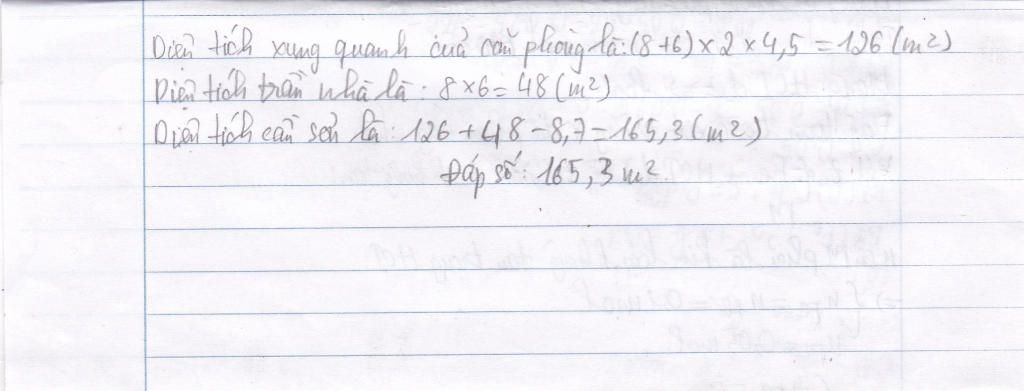 Diện tích xung quanh của căn phòng là: (8+6) × 2 × 4,5 = 126 (m2)
Diện tích trần nhà là: 8 × 6 = 48 (m2)
Diện tích cần sơn là: 126 + 48 - 8,7 = 165,3 (m2)
Đáp số: 165,3 m2.